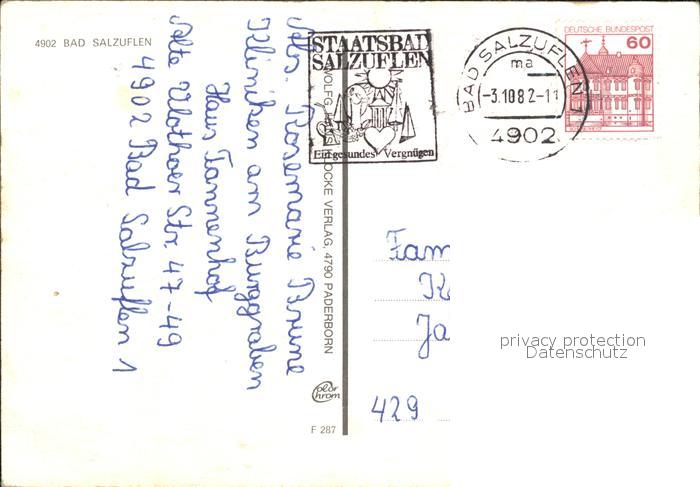 4902 BAD SALZUFLEN
Abs. Rosemarie Brune
Kliniken am Burggraben
Haus Tannenhof
Alte Vlothoer Str. 47-49
4902 Bad Salzuflen 1
STAATSBAD
SALZUFLEN
Ein gesundes Vergnügen
BAD SALZUFLEN 1
ma
-3.10.82-11
4902
DEUTSCHE BUNDESPOST
60
VERLAG, 4790 PADERBORN
color
chrom
F 287
Fam
K
Ja
429
privacy protection
Datenschutz